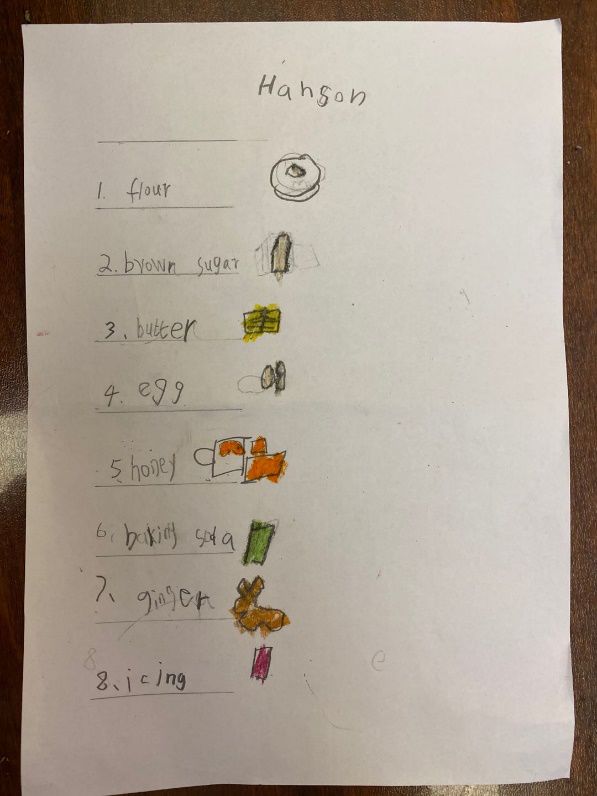 Hanson
1. flour
2. brown sugar
3. butter
4. egg
5. honey
6. baking soda
7. ginger
8. icing
e